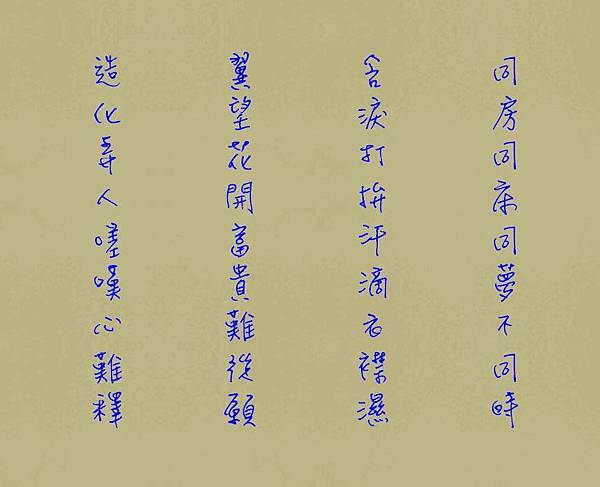 同房同床同夢不同時
含淚打拚汗滴衣襟濕
翼望花開富貴難從願
造化弄人嗟嘆心難釋